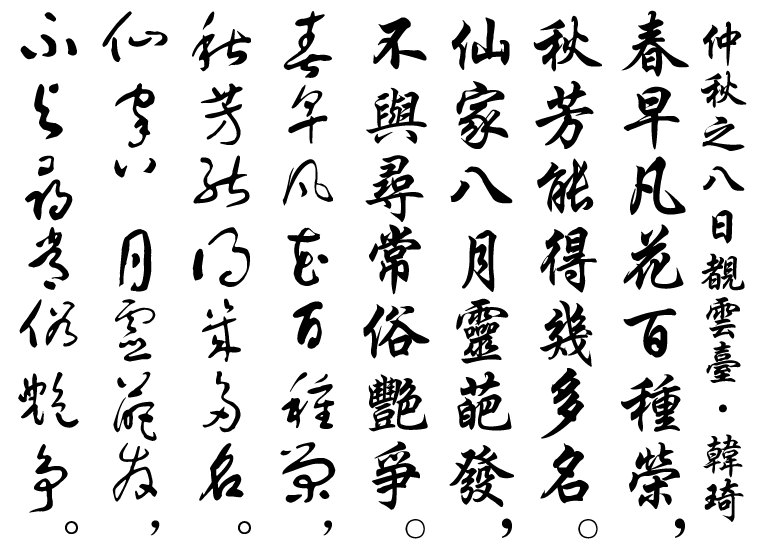 仲秋之八日覩雲臺・韓琦
春早凡花百種榮，
秋芳能得幾多名。
仙家八月靈葩發，
不與尋常俗艷爭。
春早凡花百種榮，
秋芳能得幾多名。
仙家八月靈葩發，
不與尋常俗艷爭。